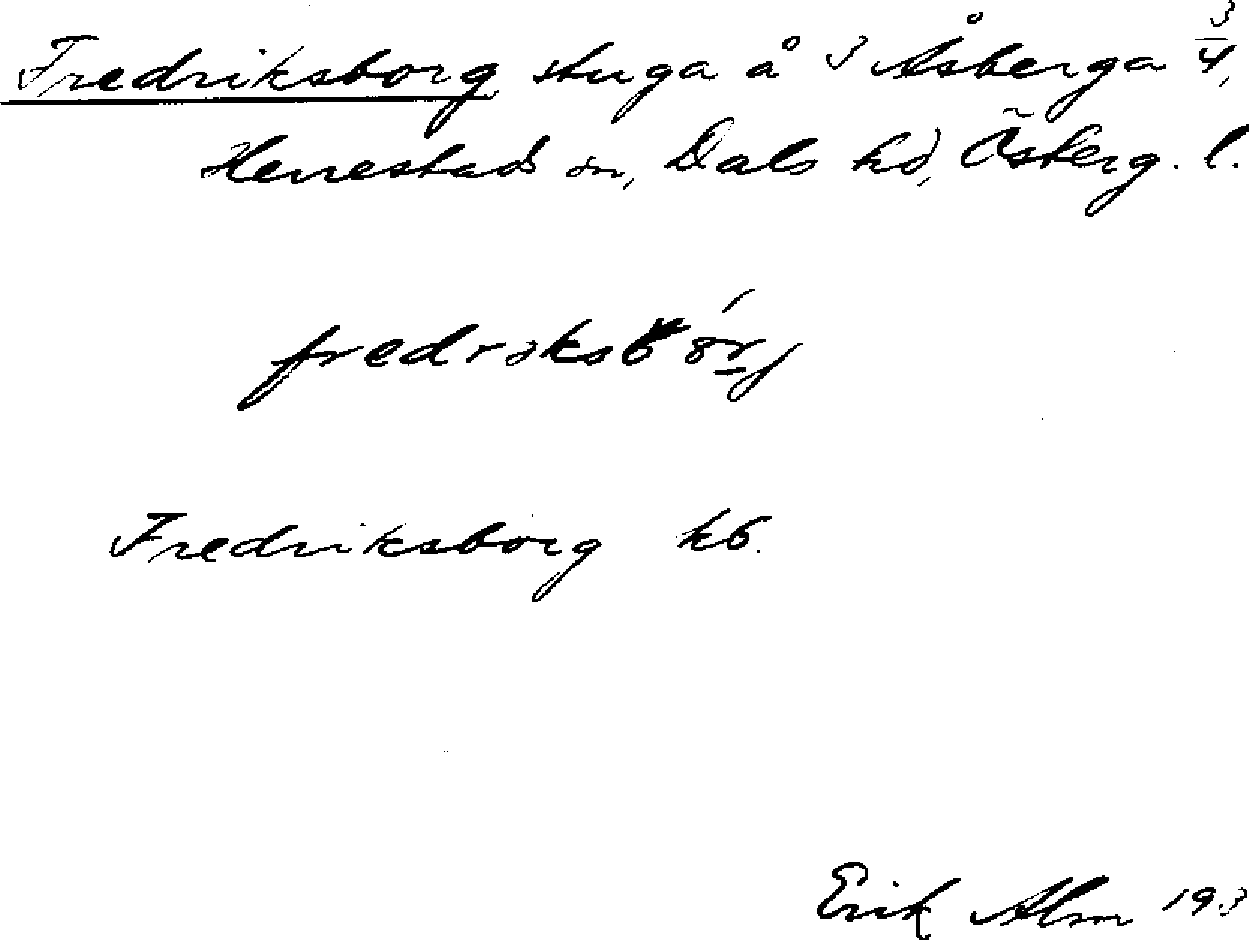 Fredriksborg stuga å 3 Åsberga 3/4,
Herrestads sn, Dals hd, Österg. l.
Fredriksborg kb.
Erik Alm 193